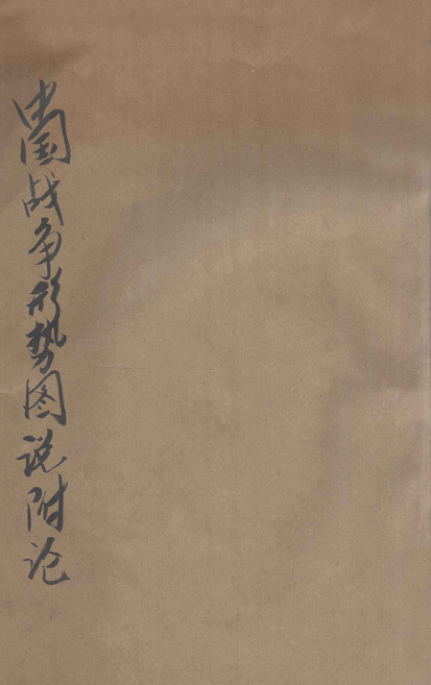 中国战争形势图说附论